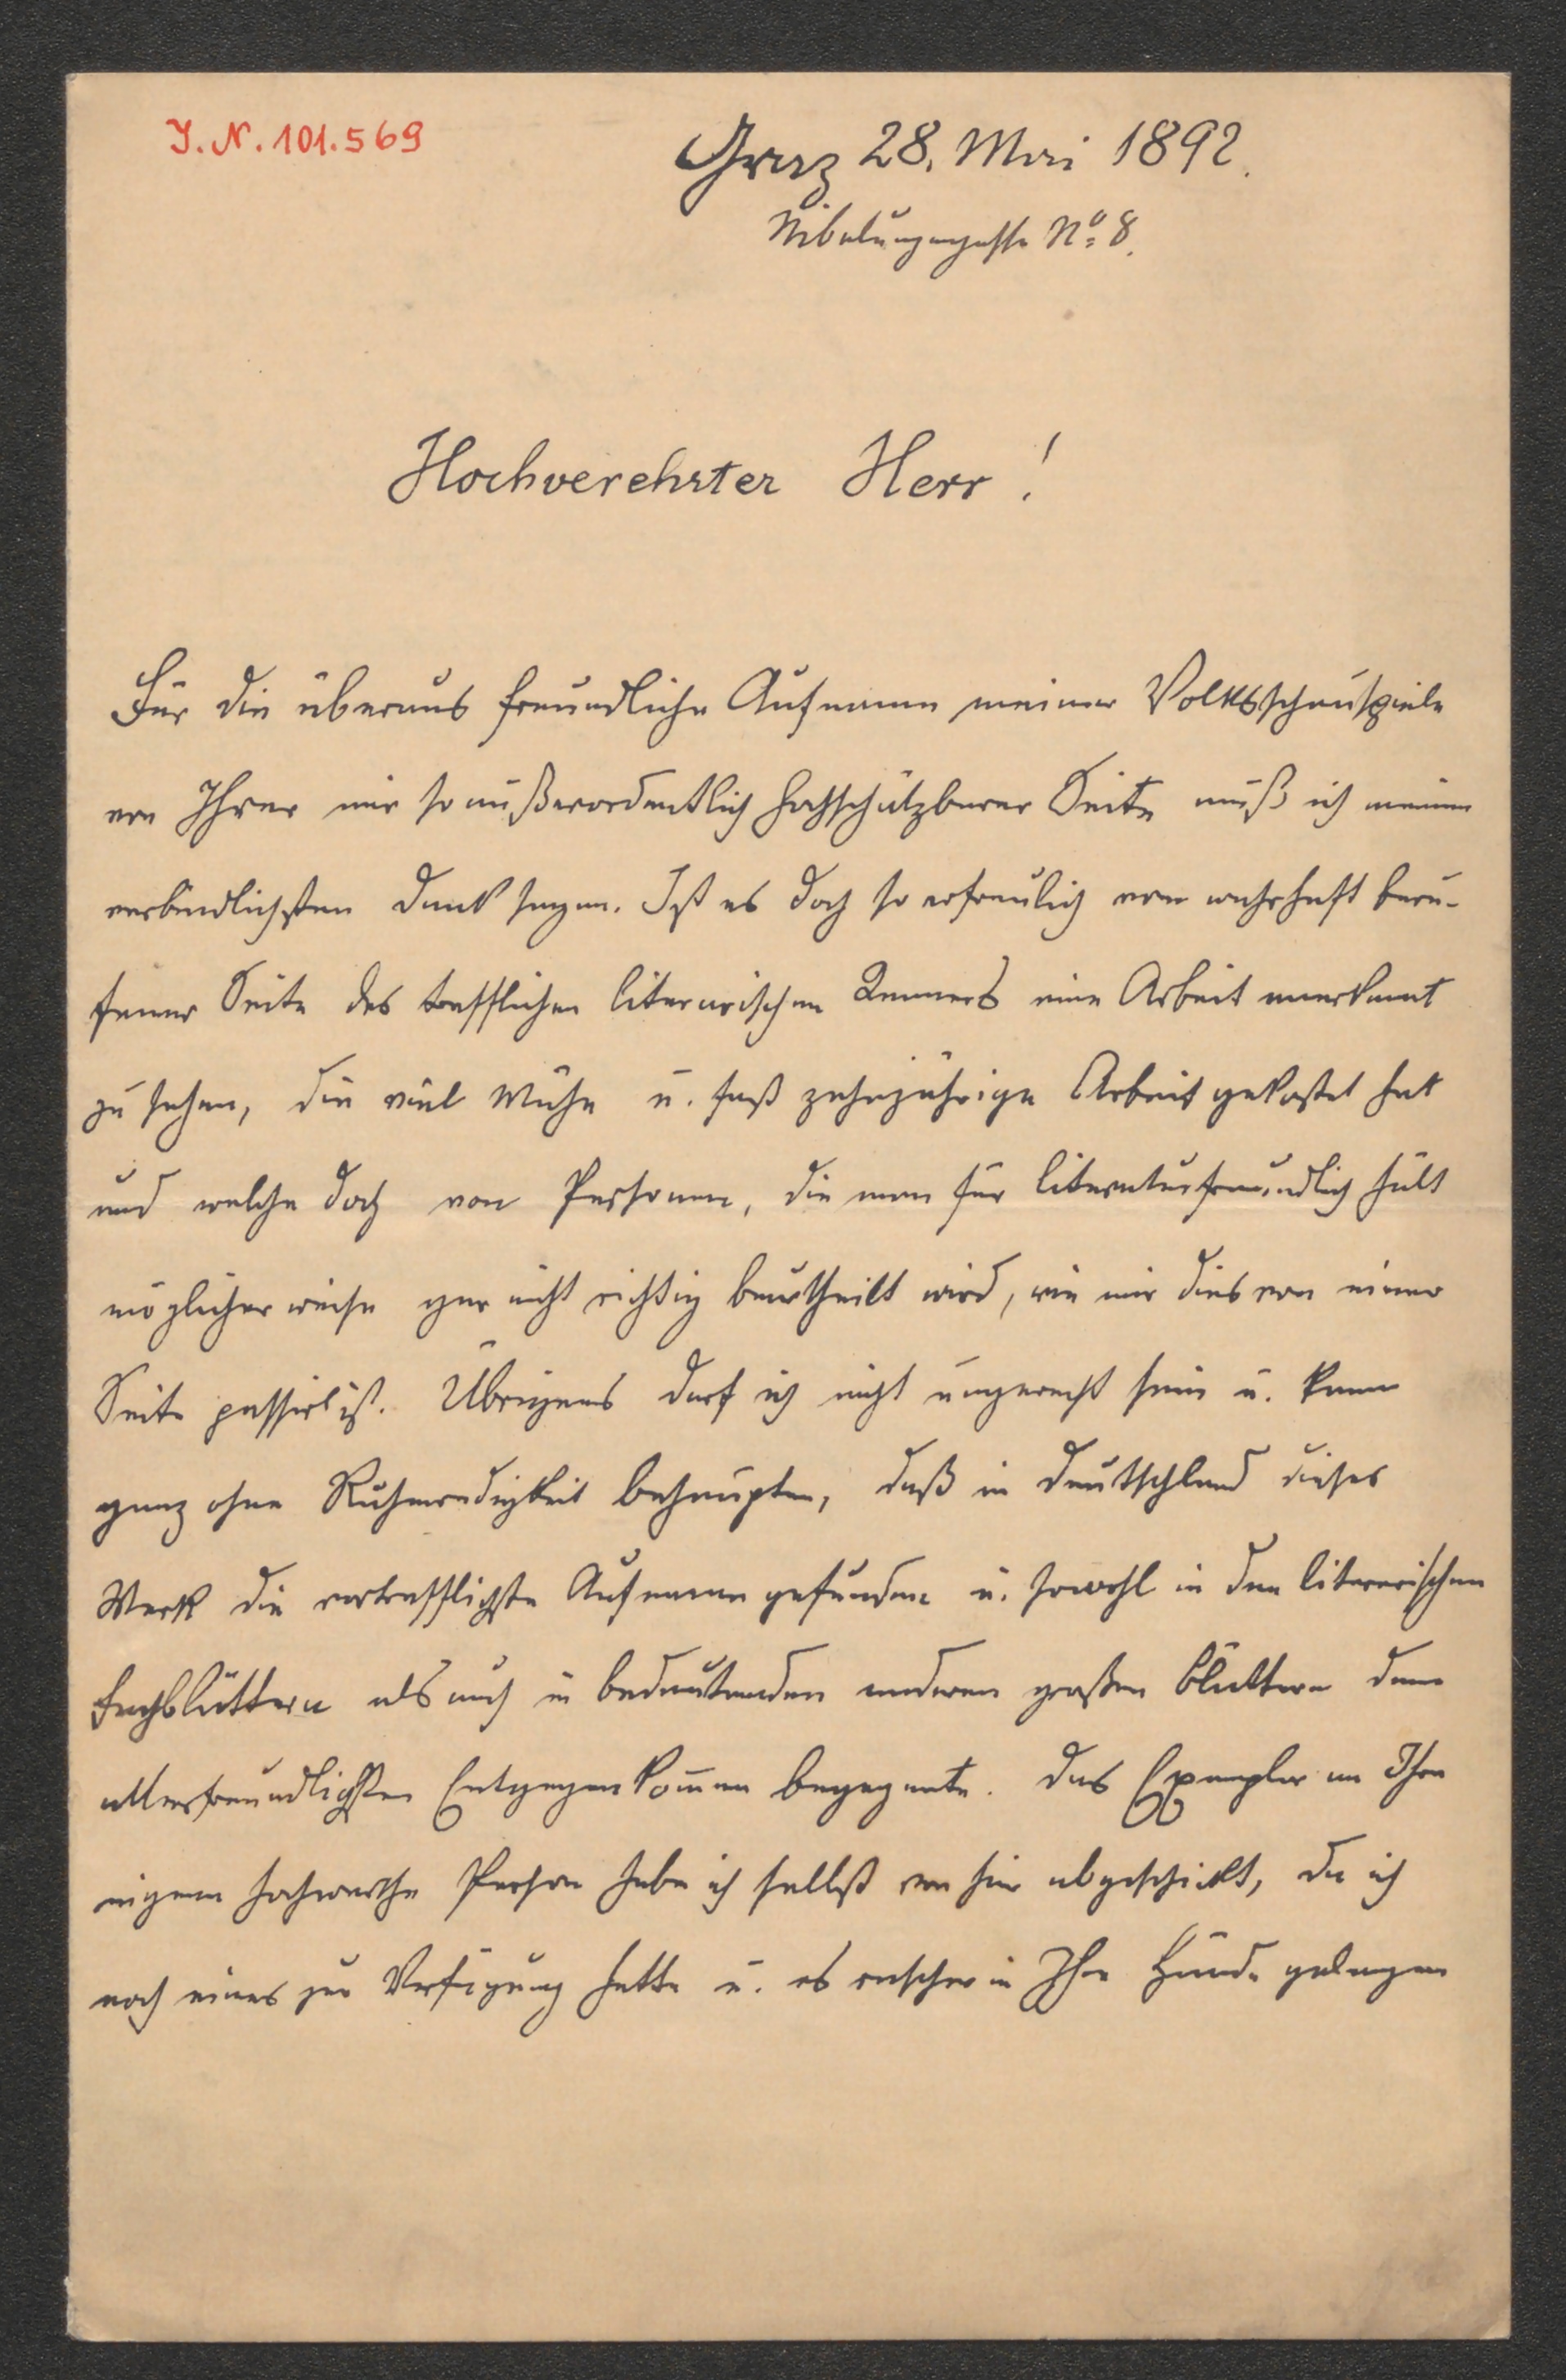 J.N. 101.569
Graz 28. Mai 1892.
Nibelungengasse No 8.
Hochverehrter Herr!
Für die überaus freundliche Aufname meiner Volksschauspiele
von Ihrer mir so außerordentlich hochschätzbarer Seite muß ich meinen
verbindlichsten Dank sagen. Ist es doch so erfreulich von wahrhaft beru-
fener Seite des trefflichen literarischen Kenners eine Arbeit anerkannt
zu sehen, die viel Mühe u. fast zehnjährige Arbeit gekostet hat
und welche doch von Personen, die man für literaturfreundlich hält
möglicherweise gar nicht richtig beurtheilt wird, wie mir dies von einer
Seite passirt ist. Übrigens darf ich nicht ungerecht sein u. kann
ganz ohne Ruhmredigkeit behaupten, daß in Deutschland dieses
Werk die vortrefflichste Aufname gefunden u. sowohl in den literarischen
Fachblättern als auch in bedeutenden anderen großen Blättern dem
allerfreundlichsten Entgegenkom̅en begegnete. Das Exemplar an Ihre
eigene hochwerthe Person habe ich selbst von hier abgeschickt, da ich
noch eines zur Verfügung hatte u. es rascher in Ihre Hände gelangen